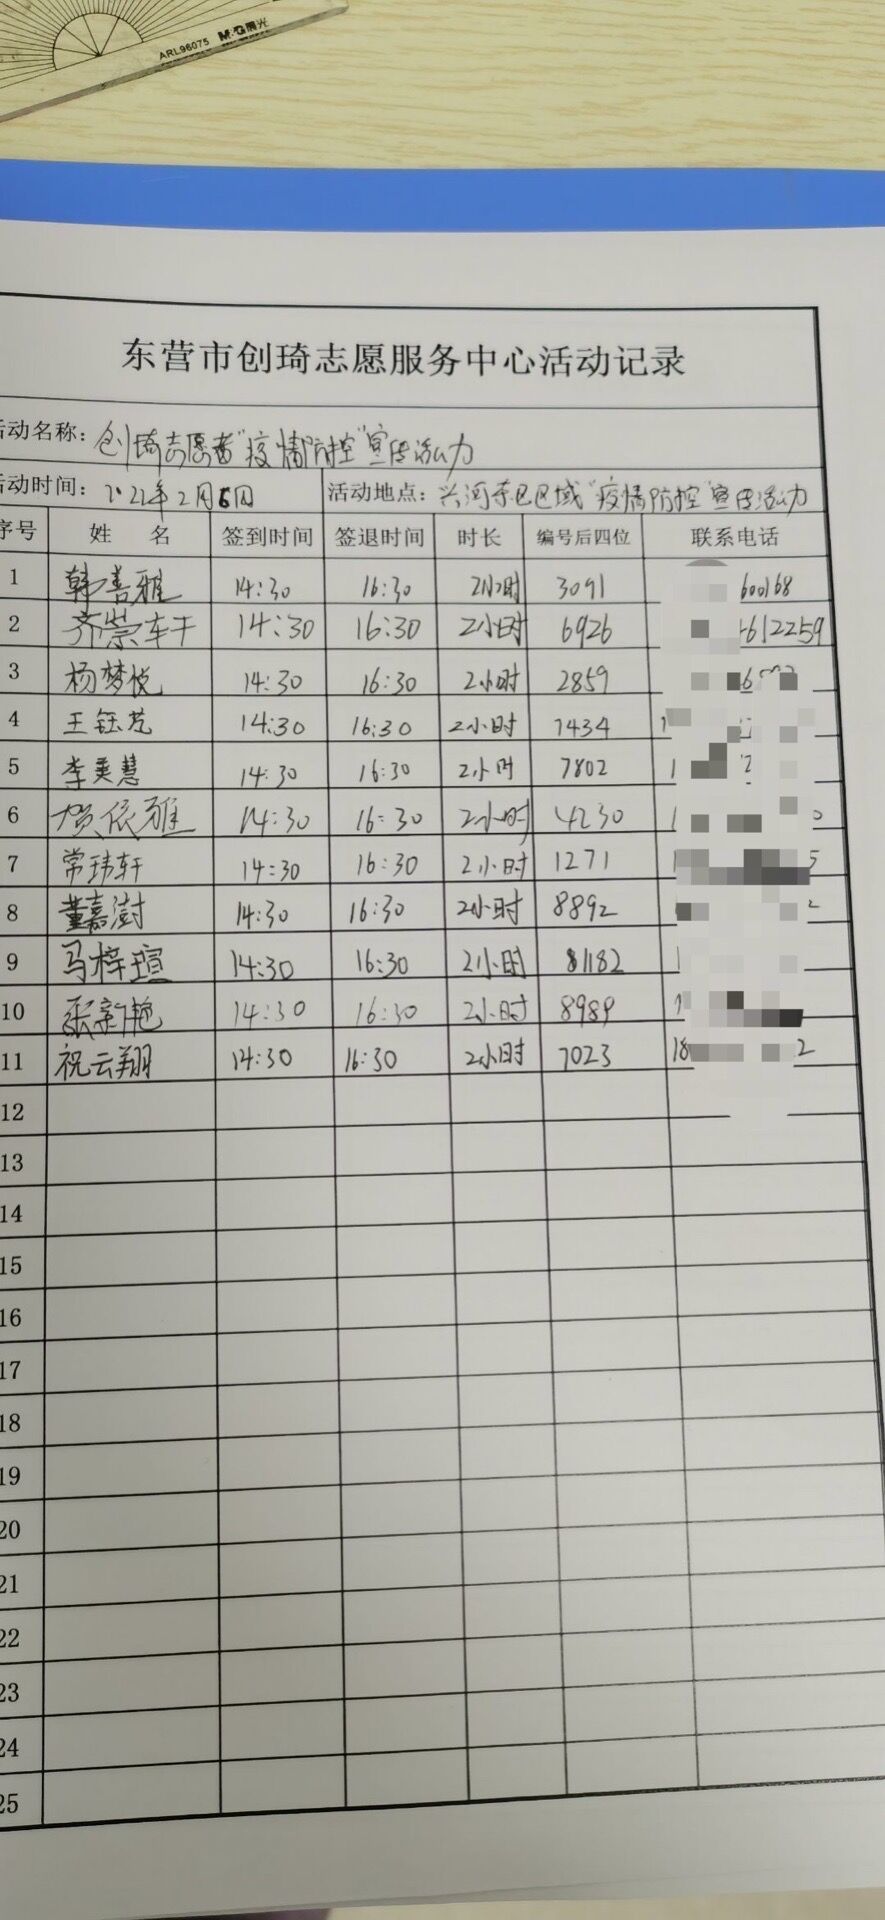 ARL96075 M&G晨光
东营市创琦志愿服务中心活动记录
活动名称：创琦志愿者“疫情防控”宣传活动
活动时间：2022年2月6日 活动地点：兴河东巴区域“疫情防控”宣传活动
序号 姓 名 签到时间 签退时间 时长 编号后四位 联系电话
1 韩善雅 14:30 16:30 2小时 3091 600168
2 齐崇轩 14:30 16:30 2小时 6926 4612259
3 杨梦悦 14:30 16:30 2小时 2859
4 王钰 14:30 16:30 2小时 7434 1
5 李美慧 14:30 16:30 2小时 7802 1
6 贺依雅 14:30 16:30 2小时 4230 1 0
7 常玮轩 14:30 16:30 2小时 1271 1 5
8 董嘉澍 14:30 16:30 2小时 8892 2
9 马梓瑄 14:30 16:30 2小时 81182 1
10 张新艳 14:30 16:30 2小时 8989 1
11 祝云翔 14:30 16:30 2小时 7023 18 2
12
13
14
15
16
17
18
19
20
21
22
23
24
25